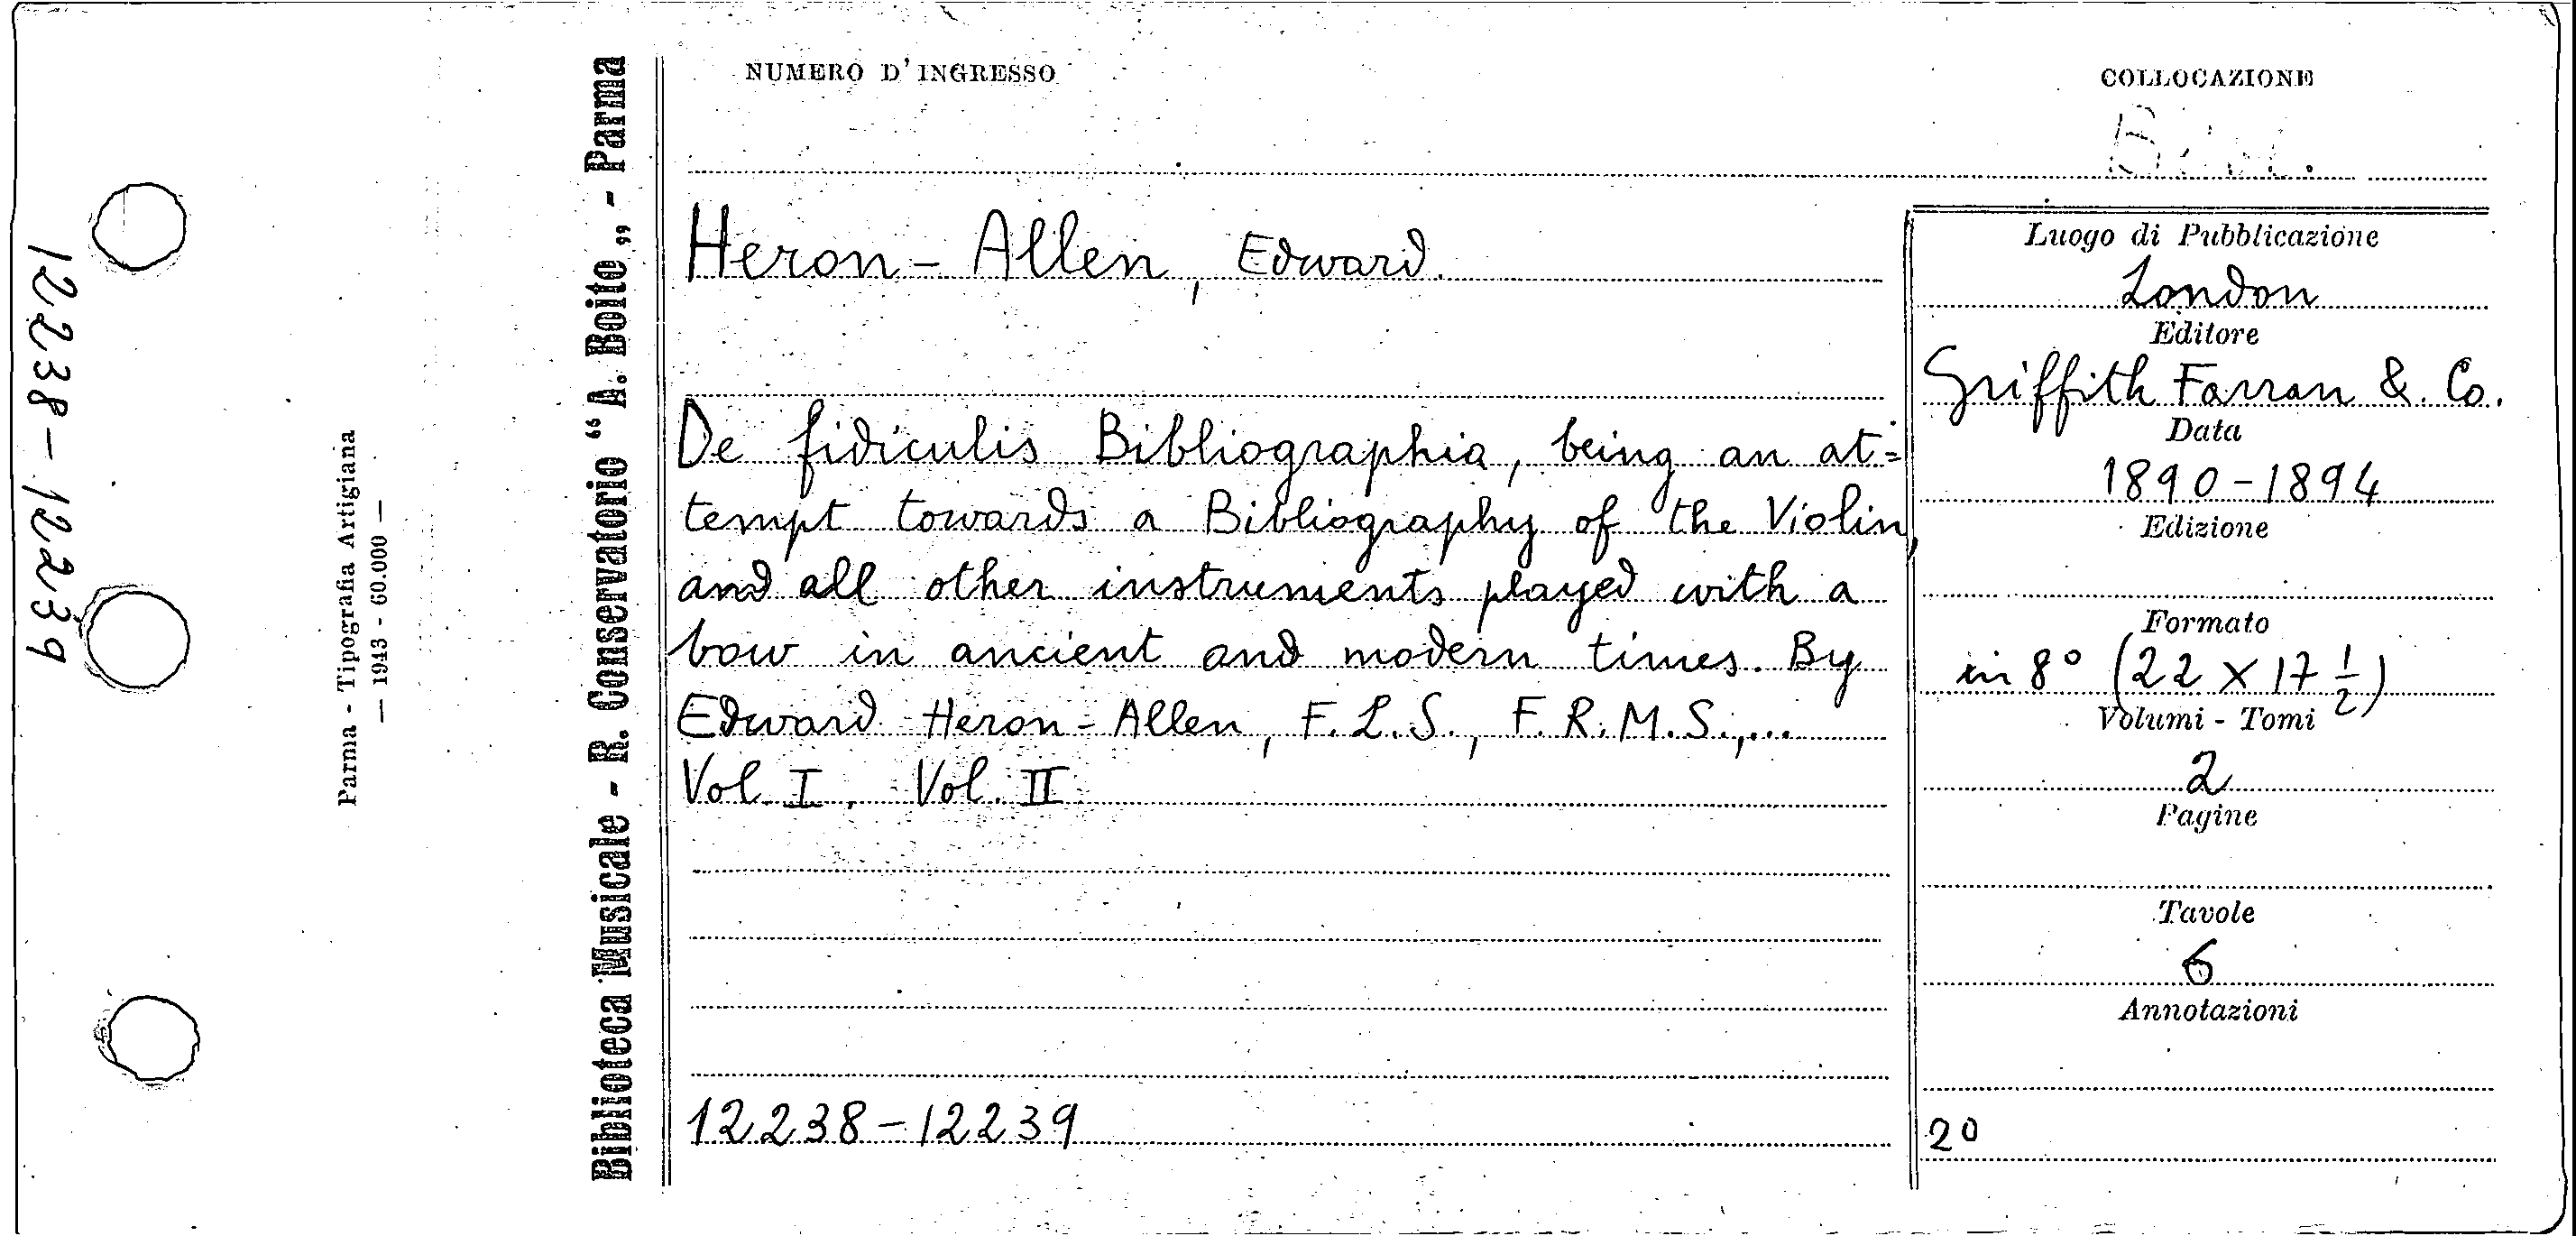 12238-12239
Parma - Tipografia Artigiana
— 1943 - 60.000 —
Biblioteca Musicale - R. Conservatorio “A. Boito„ - Parma
NUMERO D'INGRESSO
COLLOCAZIONE
Heron-Allen, Edward.
De fidiculis Bibliographia, being an at=
tempt towards a Bibliography of the Violin,
and all other instruments played with a
bow in ancient and modern times. By
Edward Heron-Allen, F.L.S., F.R.M.S.,...
Vol. I. Vol. II
12238-12239
Luogo di Pubblicazione
London
Editore
Griffith Farran & Co.
Data
1890-1894
Edizione
Formato
in 8° (22 x 17 1/2)
Volumi - Tomi
2
Pagine
Tavole
6
Annotazioni
20